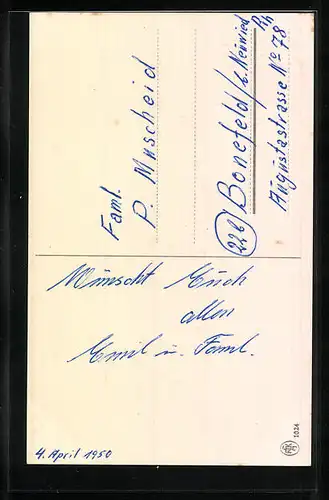 Faml.
P. Muscheid
(22b) Bonefeld/b. Neuwied
Rh
Augustastrasse No 78
Wünscht Euch
allen
Emil u. Faml.
4. April 1950
1024